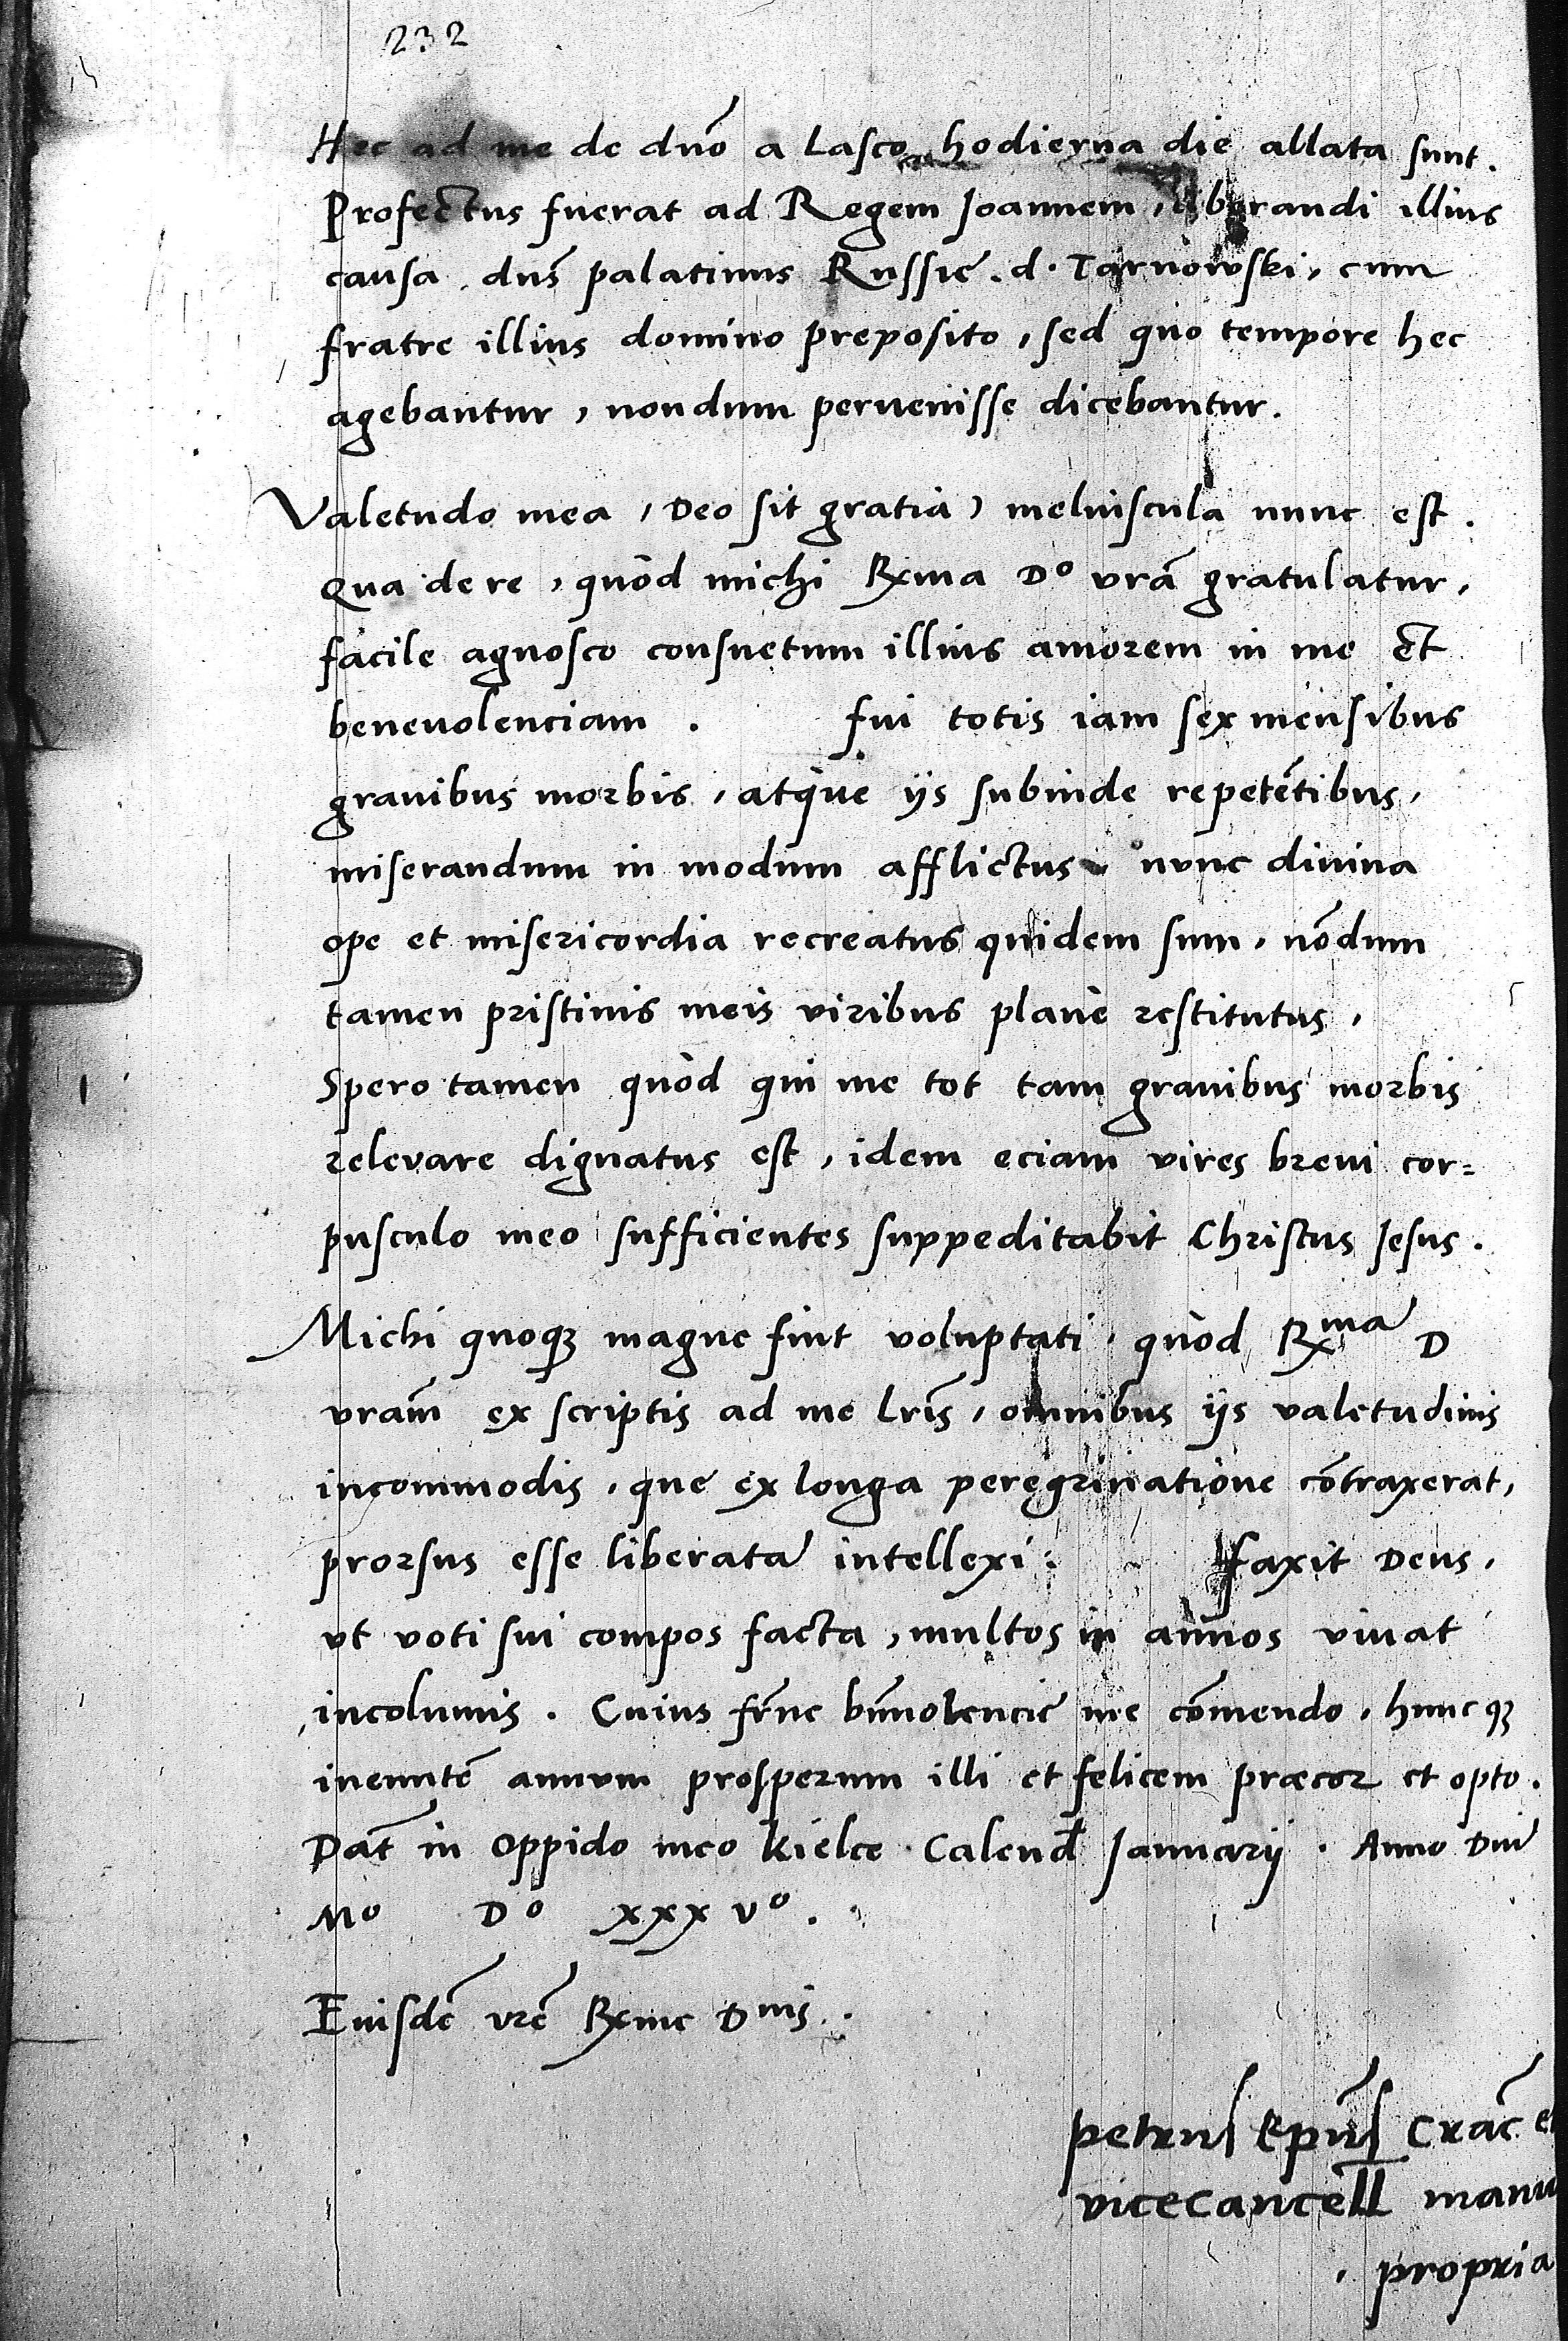 232
Hec ad me de dnō a Lasco hodierna die allata sunt.
Profectus fuerat ad Regem Joannem, liberandi illius
causa, dns̄ palatinus Russię. d. Tarnowski, cum
fratre illius domino preposito, sed quo tempore hec
agebantur, nondum peruenisse dicebantur.
Valetudo mea, Deo sit gratia) meliuscula nunc est.
Qua de re, quòd michi Rxma Dᵒ vrā gratulatur,
facile agnosco consuetum illius amorem in me Et
beneuolenciam. fui totis iam sex mensibus
grauibus morbis, atque ijs subinde repetētibus,
miserandum in modum afflictus, nunc diuina
ope et misericordia recreatus quidem sum, nōdum
tamen pristinis meis viribus planè restitutus,
Spero tamen quòd qui me tot tam grauibus morbis
relevare dignatus est, idem eciam vires breui cor=
pusculo meo sufficientes suppeditabit Christus Jesus.
Michi quoqȝ magne fuit voluptati, quòd Rxᵐᵃ D
vram̄ ex scriptis ad me lrīs, omnibus ijs valetudinis
incommodis, que ex longa peregrinatione cōtraxerat,
prorsus esse liberatā intellexi: faxit Deus,
vt voti sui compos facta, multos in annos viuat
incolumis. Cuius frn̄e bn̄uolencię me cōmendo, huncqȝ
ineuntē annum prosperum illi et felicem præcor et opto.
Dat̄ in Oppido meo Kielce. Calend̄ Januarij. Anno Dnī
Mᵒ Dᵒ xxx vᵒ.
Eiusdē vrē Rxme Dnis.
petrus Epūs Crac̄ et
vicecancell̄ manu
propria